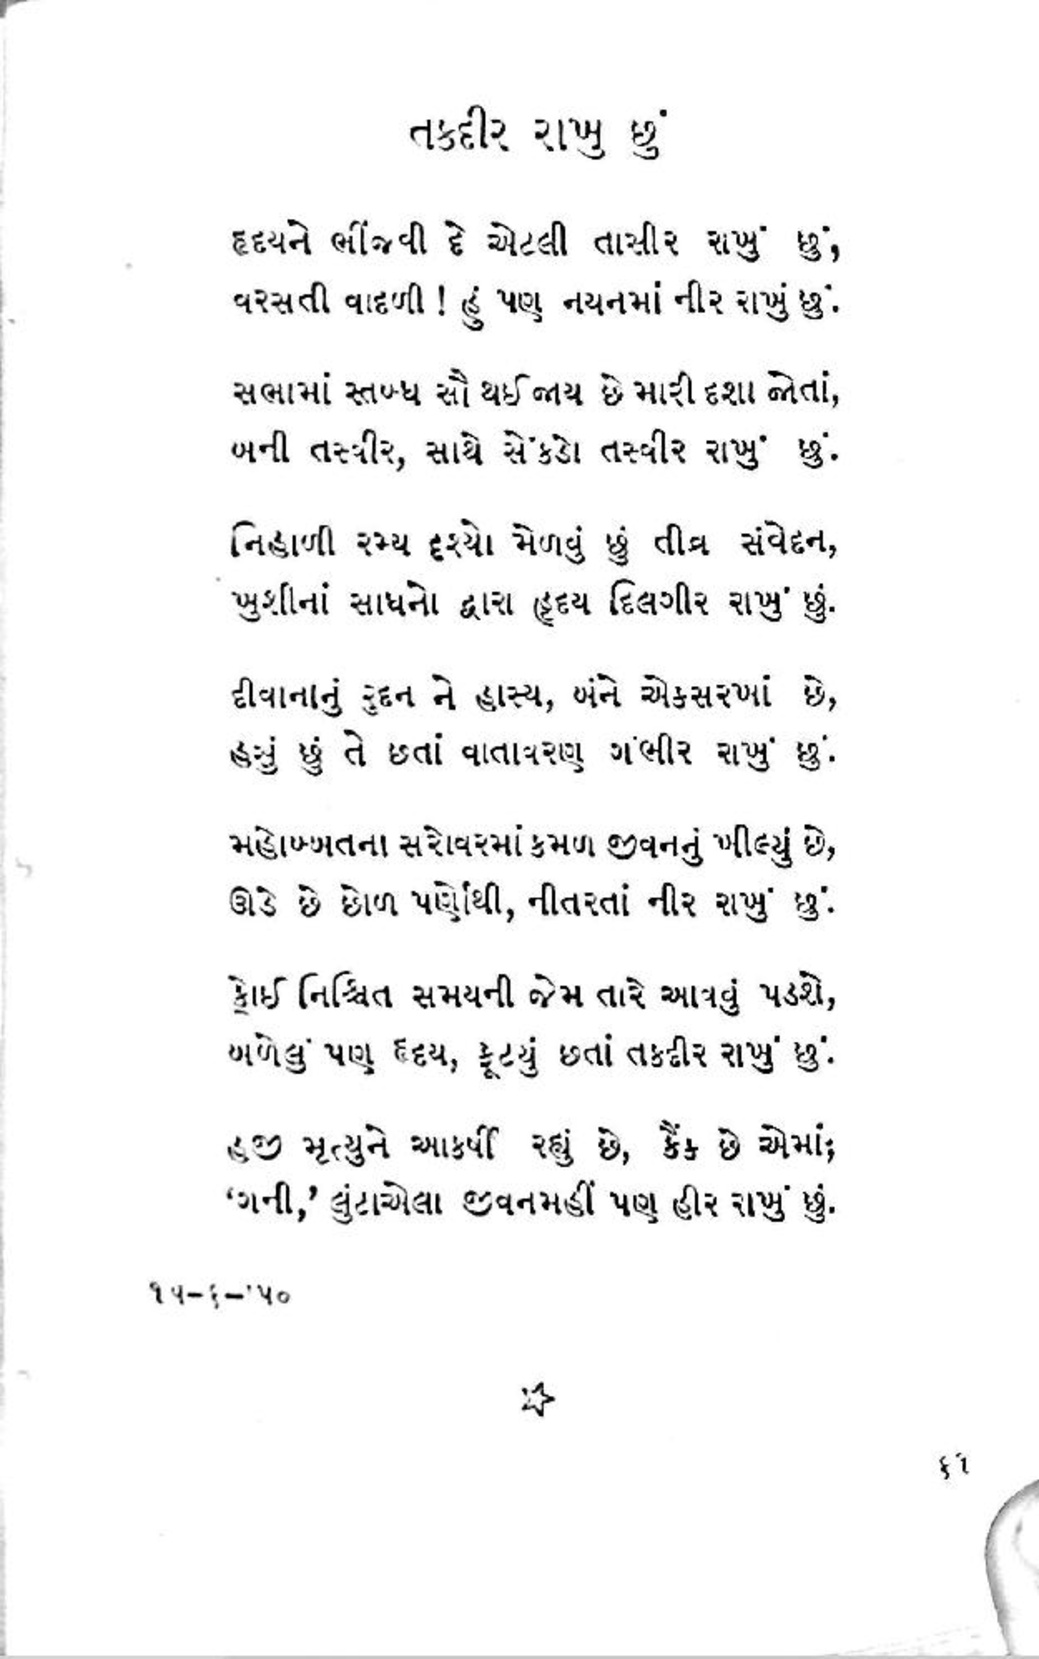 તકદીર રાખુ છું
હૃદયને ભીંજવી દે એટલી તાસીર રાખું છું,
વરસતી વાદળી ! હું પણ નયનમાં નીર રાખું છું.
સભામાં સ્તબ્ધ સૌ થઈ જાય છે મારી દશા જોતાં,
બની તસ્વીર, સાથે સેંકડો તસ્વીર રાખું છું.
નિહાળી રમ્ય દૃશ્યો મેળવું છું તીવ્ર સંવેદન,
ખુશીનાં સાધનો દ્વારા હૃદય દિલગીર રાખું છું.
દીવાનાનું રુદન ને હાસ્ય, બંને એકસરખાં છે,
હસું છું તે છતાં વાતાવરણ ગંભીર રાખું છું.
મહોબ્બતના સરોવરમાં કમળ જીવનનું ખીલ્યું છે,
ઊડે છે છોળ પર્ણોથી, નીતરતાં નીર રાખું છું.
કોઈ નિશ્ચિત સમયની જેમ તારે આવવું પડશે,
બળેલું પણ હૃદય, ફૂટયું છતાં તકદીર રાખું છું.
હજી મૃત્યુને આકર્ષી રહ્યું છે, કૈંક છે એમાં;
‘ગની,’ લુંટાએલા જીવનમહીં પણ હીર રાખું છું.
૧૫-૬-'૫૦
૬૧